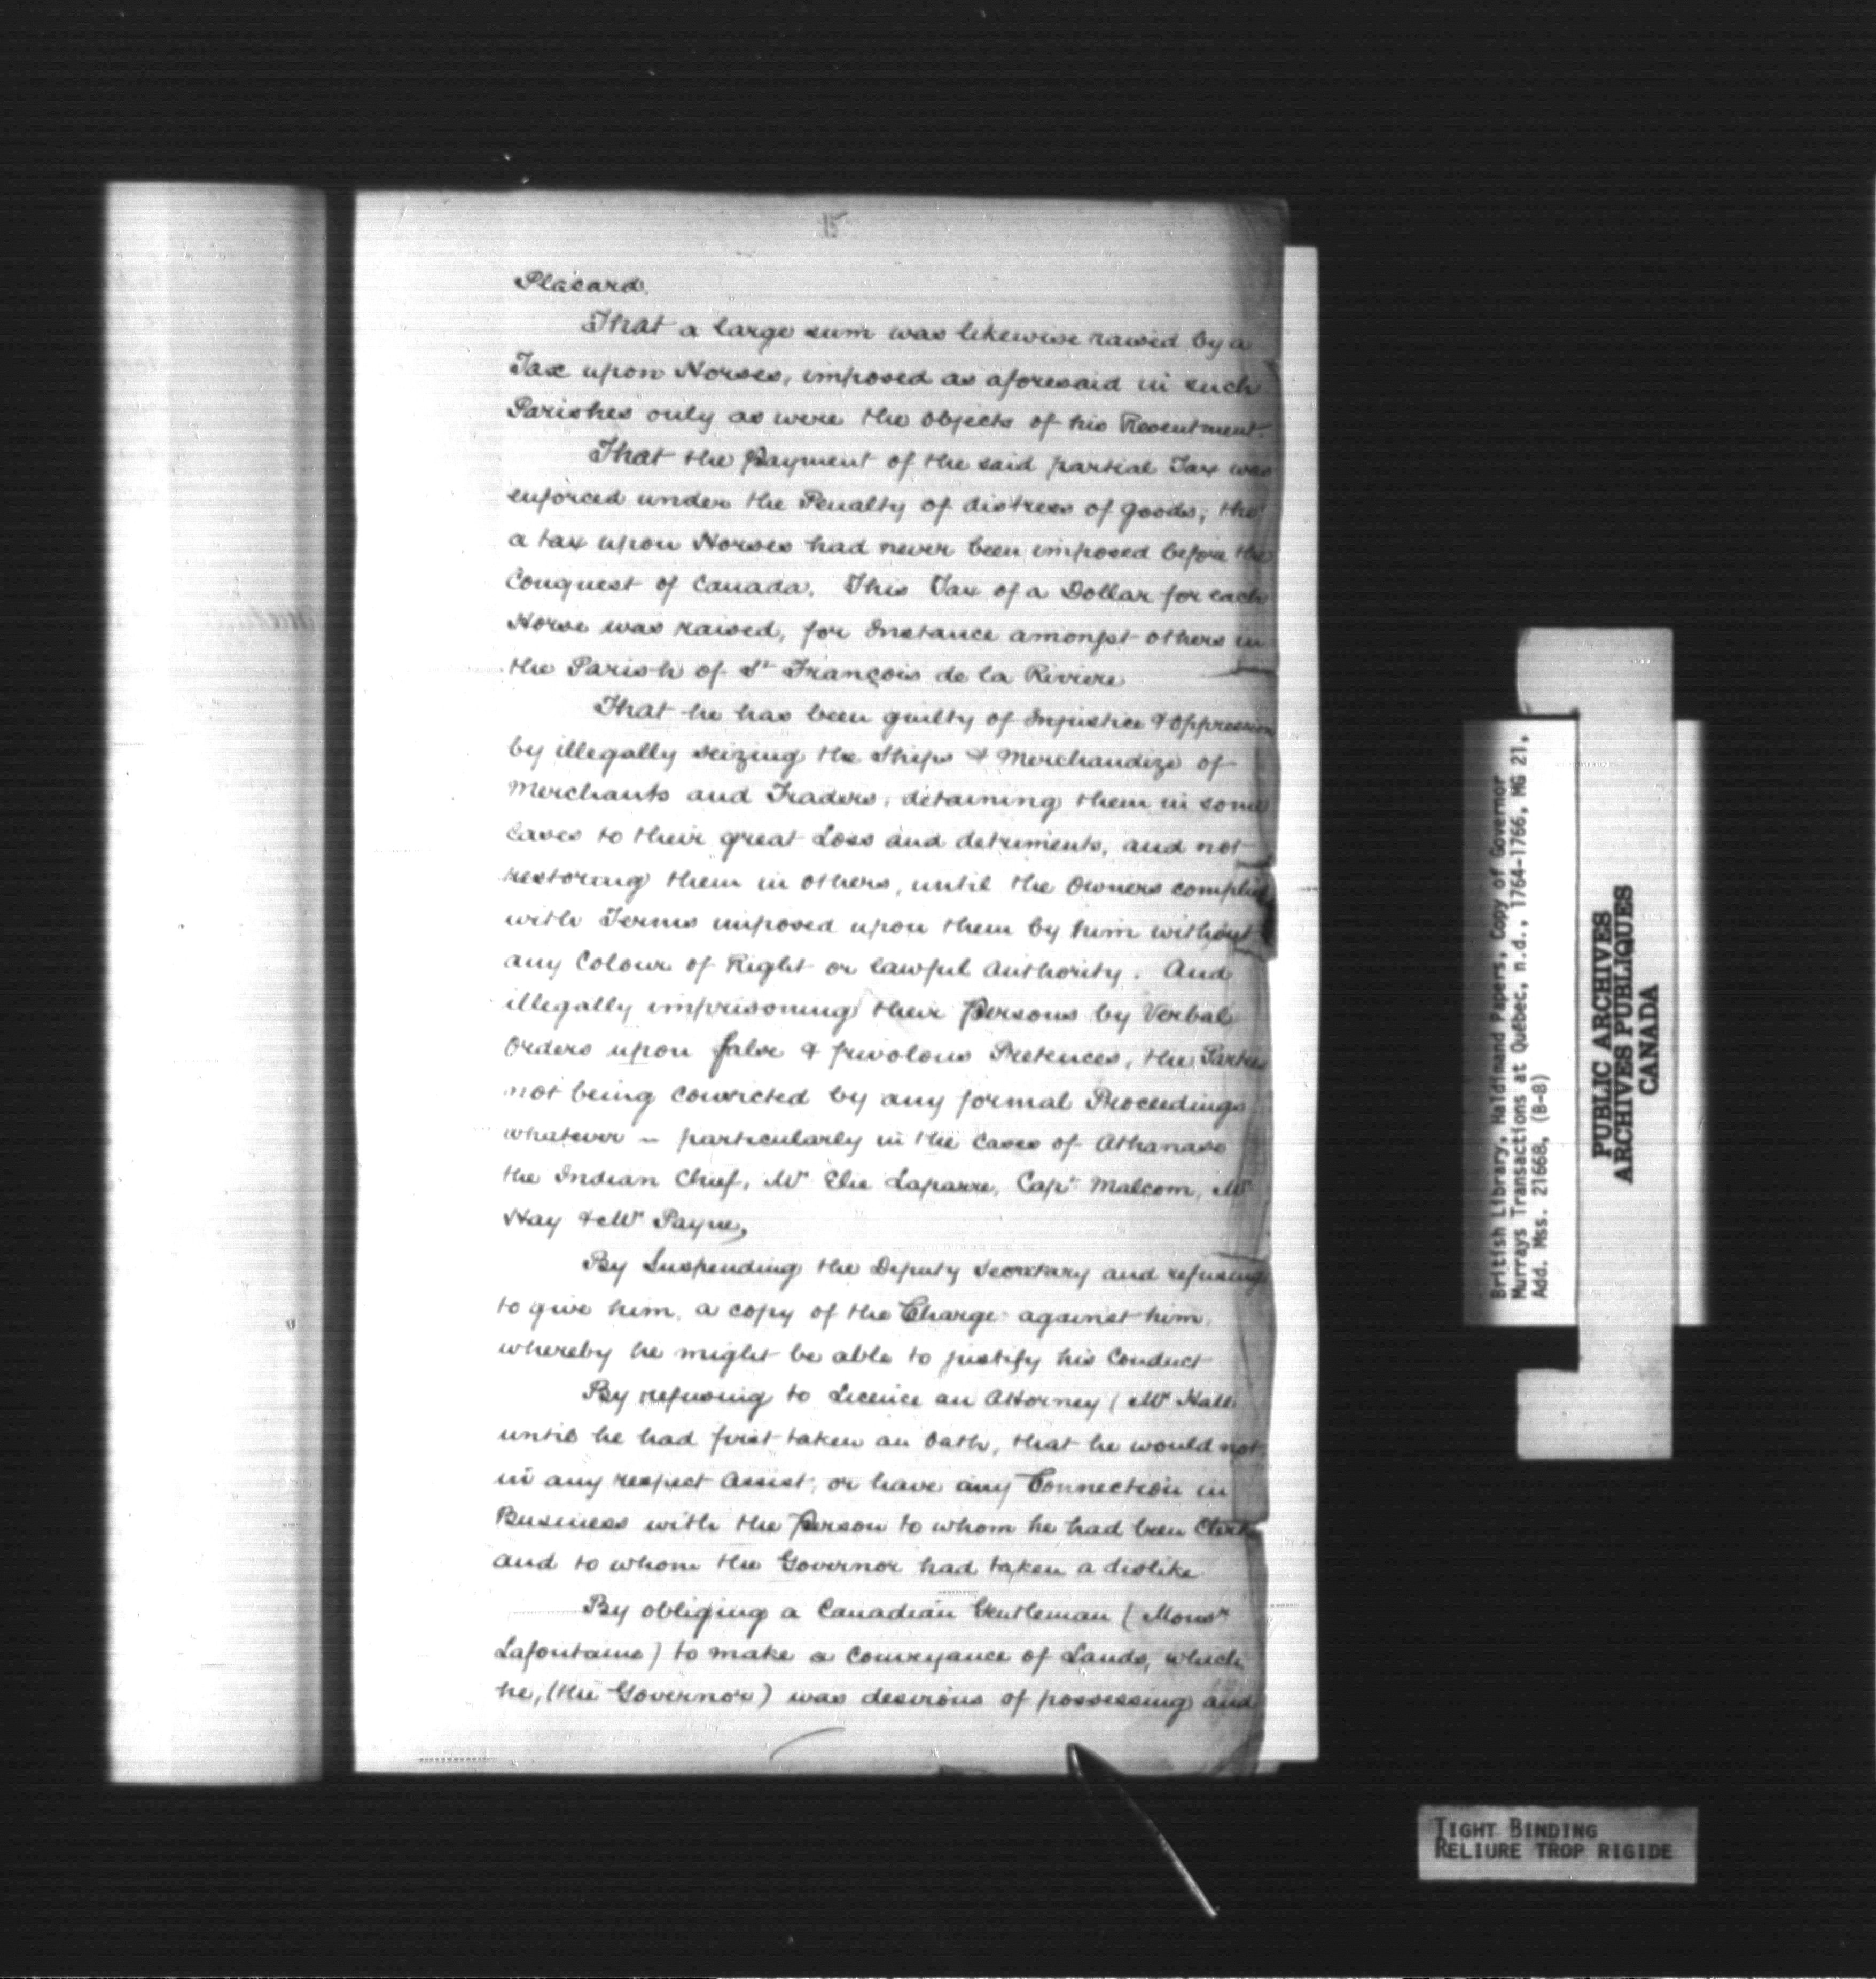 15
Placard.
That a large sum was likewise raised by a
Tax upon Horses, imposed as aforesaid in such
Parishes only as were the objects of his Resentment.
That the Payment of the said partial Tax was
enforced under the Penalty of distress of goods; tho'
a tax upon Horses had never been imposed before the
Conquest of Canada. This Tax of a Dollar for each
Horse was raised, for Instance amongst others in
the Parish of St François de la Riviere
That he has been guilty of Injustice & Oppression
by illegally seizing the Ships & Merchandize of
Merchants and Traders, detaining them in some
Cases to their great Loss and detriments, and not
restoring them in others, until the Owners complied
with Terms imposed upon them by him without
any Colour of Right or lawful Authority. And
illegally imprisoning their Persons by Verbal
Orders upon false & frivolous Pretences, the Parties
not being convicted by any formal Proceedings
whatever – particularly in the Cases of Athanase
the Indian Chief, Mr Elie Laparre, Capt Malcom, Mr
Hay & Mr Payne,
By Suspending the Deputy Secretary and refusing
to give him, a copy of the Charge against him,
whereby he might be able to justify his Conduct
By refusing to Licence an Attorney (Mr Hall
until he had first taken an Oath, that he would not
in any respect Assist, or have any Connection in
Business with the Person to whom he had been Clerk
and to whom the Governor had taken a dislike.
By obliging a Canadian Gentleman (Monsr
Lafontaine) to make a Conveyance of Lands, which
he, (the Governor) was desirous of possessing and
British Library, Haldimand Papers, Copy of Governor
Murrays Transactions at Québec, n.d., 1764-1766, MG 21,
Add. Mss. 21668, (B-8)
PUBLIC ARCHIVES
ARCHIVES PUBLIQUES
CANADA
TIGHT BINDING
RELIURE TROP RIGIDE